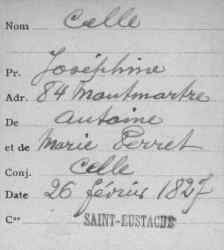 Nom Celle
Pr. Joséphine
Adr. 84 Montmartre
De Antoine
et de Marie Perret
Conj. Celle
Date 26 février 1827
Con SAINT-EUSTACHE